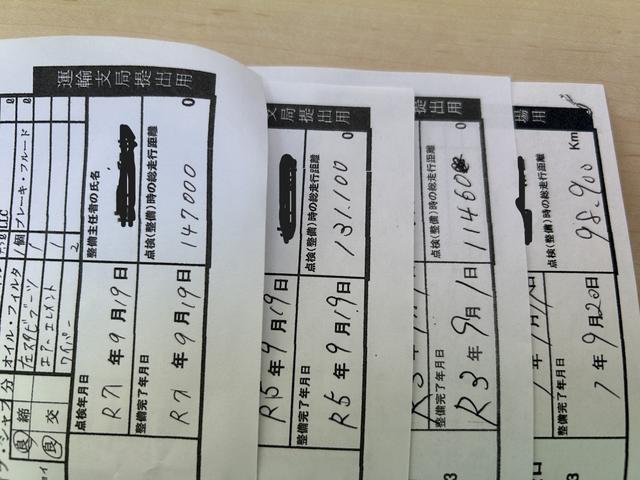 運輸支局提出用
整備主任者の氏名
点検(整備)時の総走行距離
147000
点検年月日
R7年9月19日
整備完了年月日
R7年9月19日
オイル・フィルタ 1個
ブレーキ・フルード
左スタビブーツ 1
エアーエレメント 1
ワイパー 2
良 締
良 交
支局提出用
点検(整備)時の総走行距離
131.100
R5年9月19日
整備完了年月日
R5年9月19日
提出用
点検(整備)時の総走行距離
整備完了年月日
R3年9月1日
場用
点検(整備)時の総走行距離
98.900 Km
整備完了年月日
1年9月20日